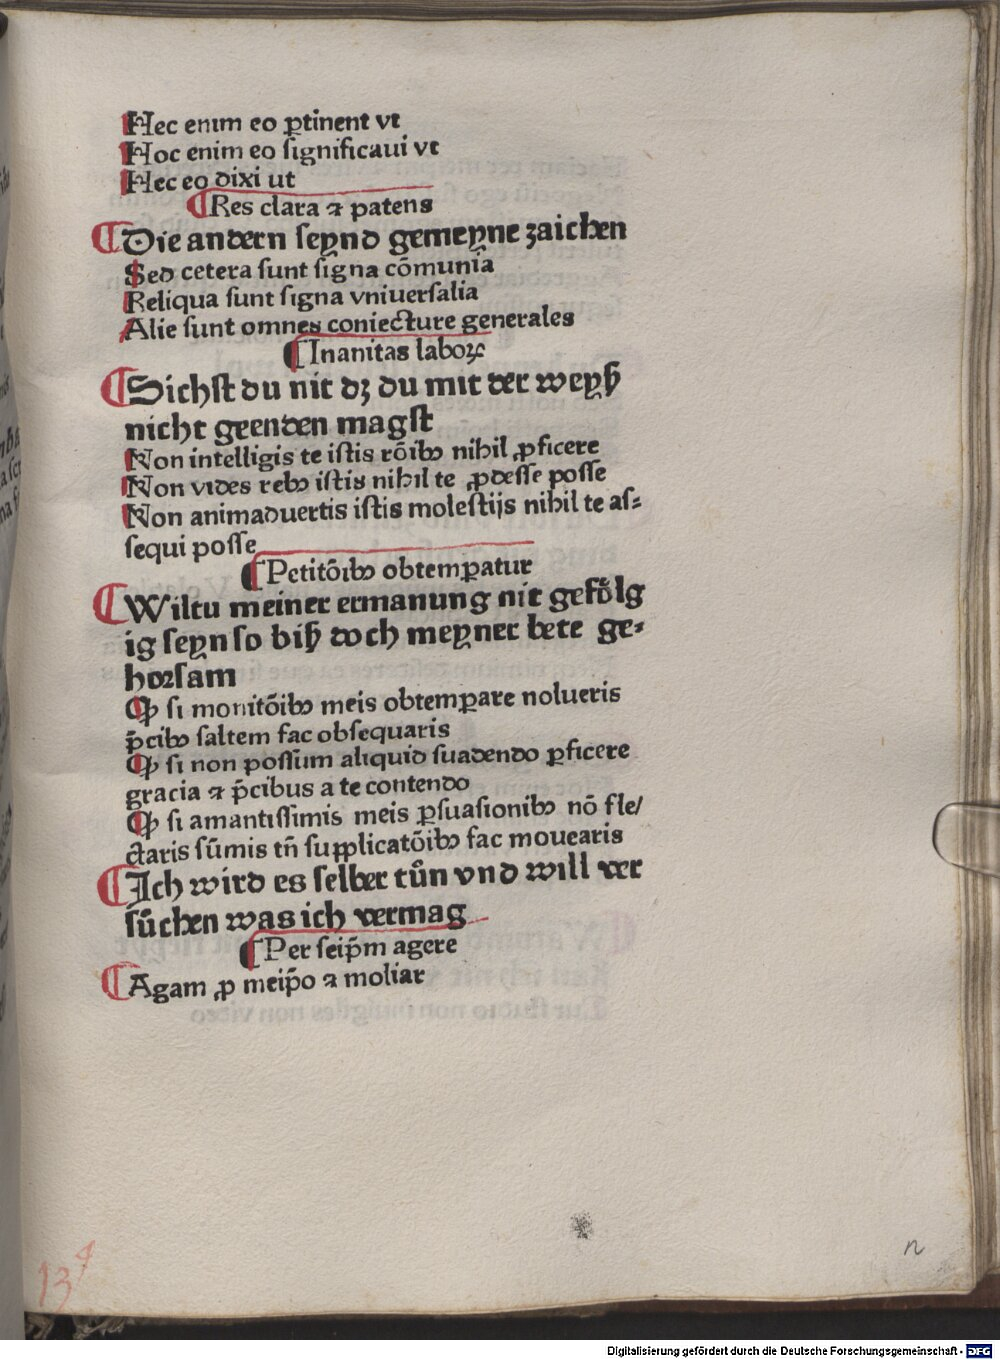 Hec enim eo ꝑtinent vt
Hoc enim eo ſignificaui vt
Hec eo dixi ut
¶Res clara ⁊ patens
¶Die andern ſeynd gemeyne zaichen
Sed cetera ſunt ſigna cōmunia
Reliqua ſunt ſigna vniuerſalia
Alie ſunt omnes coniecture generales
¶Inanitas laboꝝ
¶Sichſt du nit dz du mit der weyß
nicht geenden magſt
Non intelligis te iſtis rōibꝰ nihil ꝓficere
Non vides rebꝰ iſtis nihil te ꝓdeſſe poſſe
Non animaduertis iſtis moleſtijs nihil te aſ⸗
ſequi poſſe
¶Petitōibꝰ obtemꝑatur
¶Wiltu meiner ermanung nit gefoͤlg
ig ſeyn ſo biß doch meyner bete ge⸗
horſam
Ꝙ ſi monitōibꝰ meis obtemꝑare nolueris
p̄cibꝰ ſaltem fac obſequaris
Ꝙ ſi non poſſum aliquid ſuadendo ꝑficere
gracia ⁊ p̄cibus a te contendo
Ꝙ ſi amantiſſimis meis ꝑſuaſionibꝰ nō fle/
ctaris ſūmis tn̄ ſupplicatōibꝰ fac mouearis
¶Ich wird es ſelber tuͦn vnd will ver
ſuͦchen was ich vermag
¶Per ſeip̄m agere
¶Agam ꝓ meip̄o ⁊ moliar
13
n
Digitalisierung gefördert durch die Deutsche Forschungsgemeinschaft - DFG